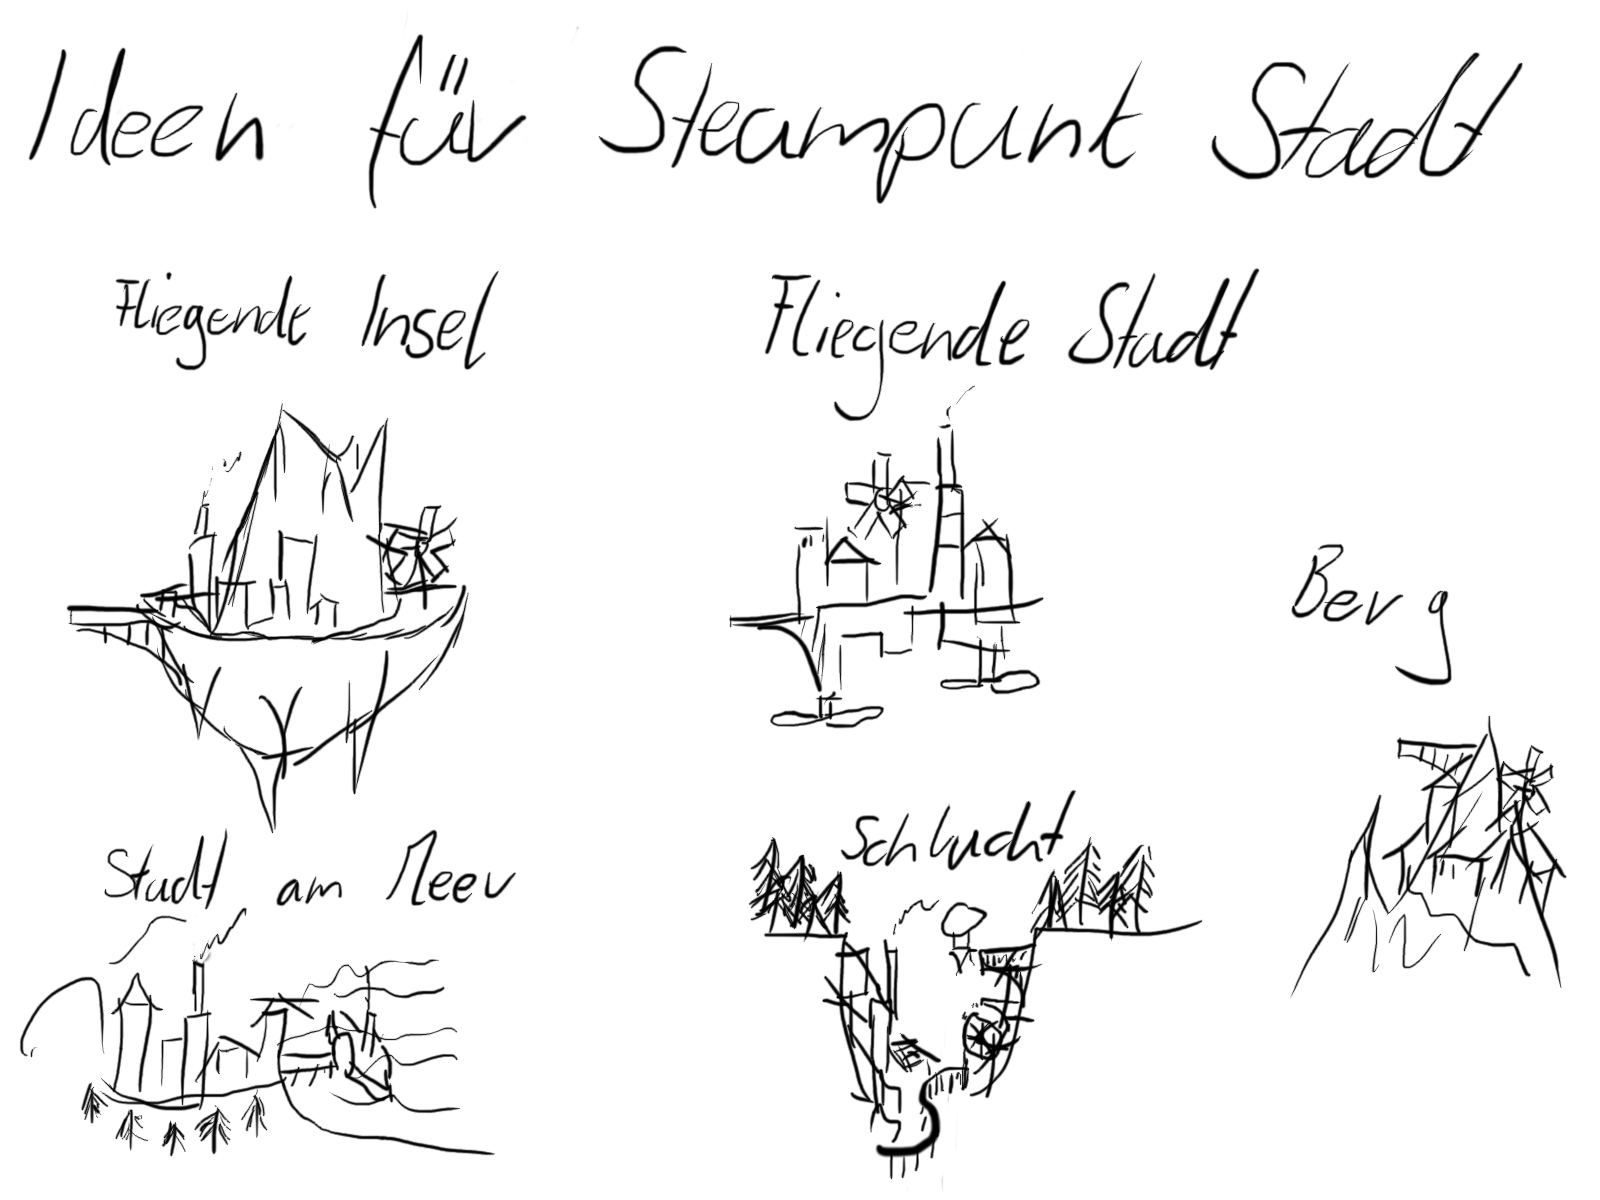 Ideen für Steampunt Stadt
Fliegende Insel
Fliegende Stadt
Berg
Stadt am Meer
Schlucht